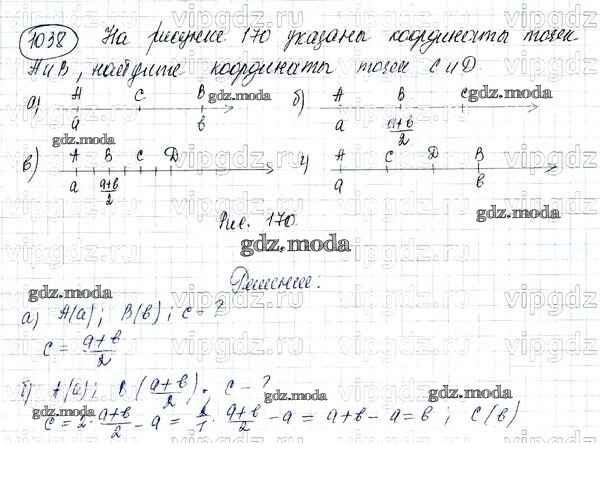 1038 На рисунке 170 указаны координаты точек
А и В, найдите координаты точек С и D.
а) A C B
a b
б) A B C
a (a+b)/2
в) A B C D
a (a+b)/2
г) A C D B
a b
Рис. 170
Решение:
а) A(a); B(b); c - ?
c = (a+b)/2
б) A(a); B((a+b)/2); c - ?
c = 2·(a+b)/2 - a = 2/1 · (a+b)/2 - a = a+b-a = b; C(b)
gdz.moda
vipgdz.ru